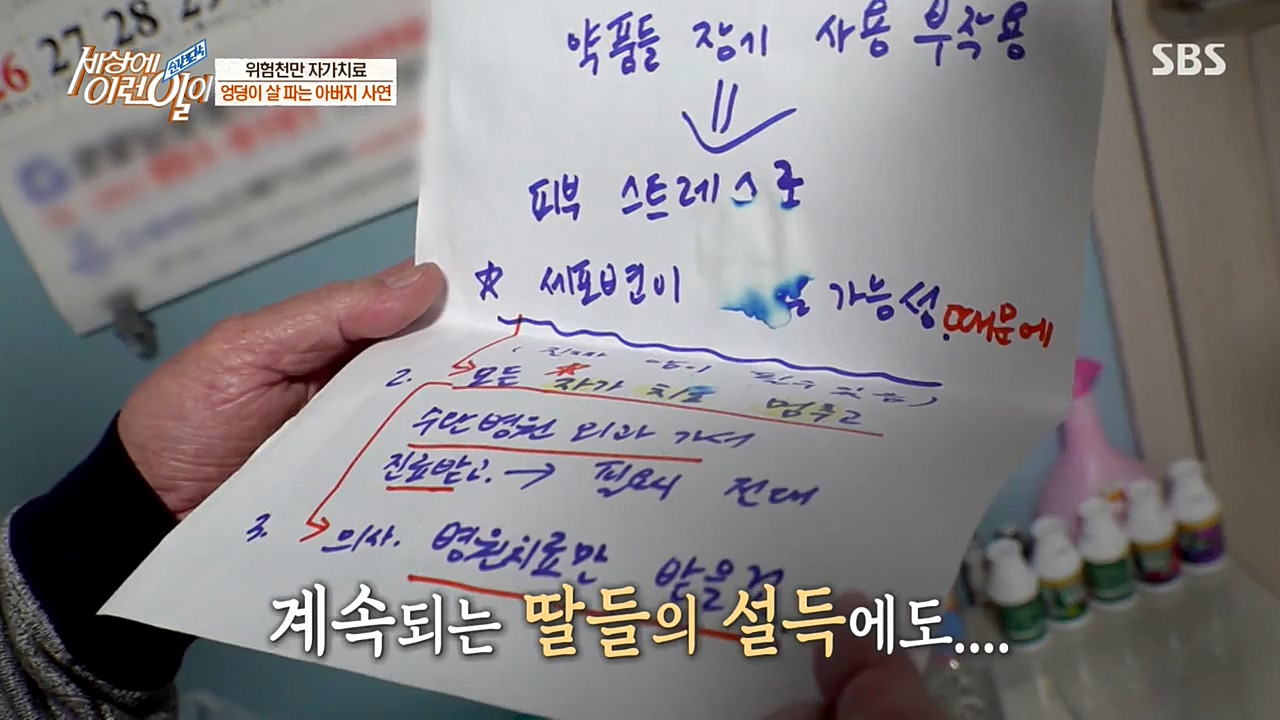 26 27 28 29
세상에 이런일이
순간포착
위험천만 자가치료
엉덩이 살 파는 아버지 사연
SBS
약품들 장기 사용 부작용
피부 스트레스로
☆ 세포변이 가능성 때문에
2. 모든 자가 치료 멈추고
수난병원 외과 가서
진료받고. → 필요시 전대
3. 의사. 병원치료만 받을것
계속되는 딸들의 설득에도....